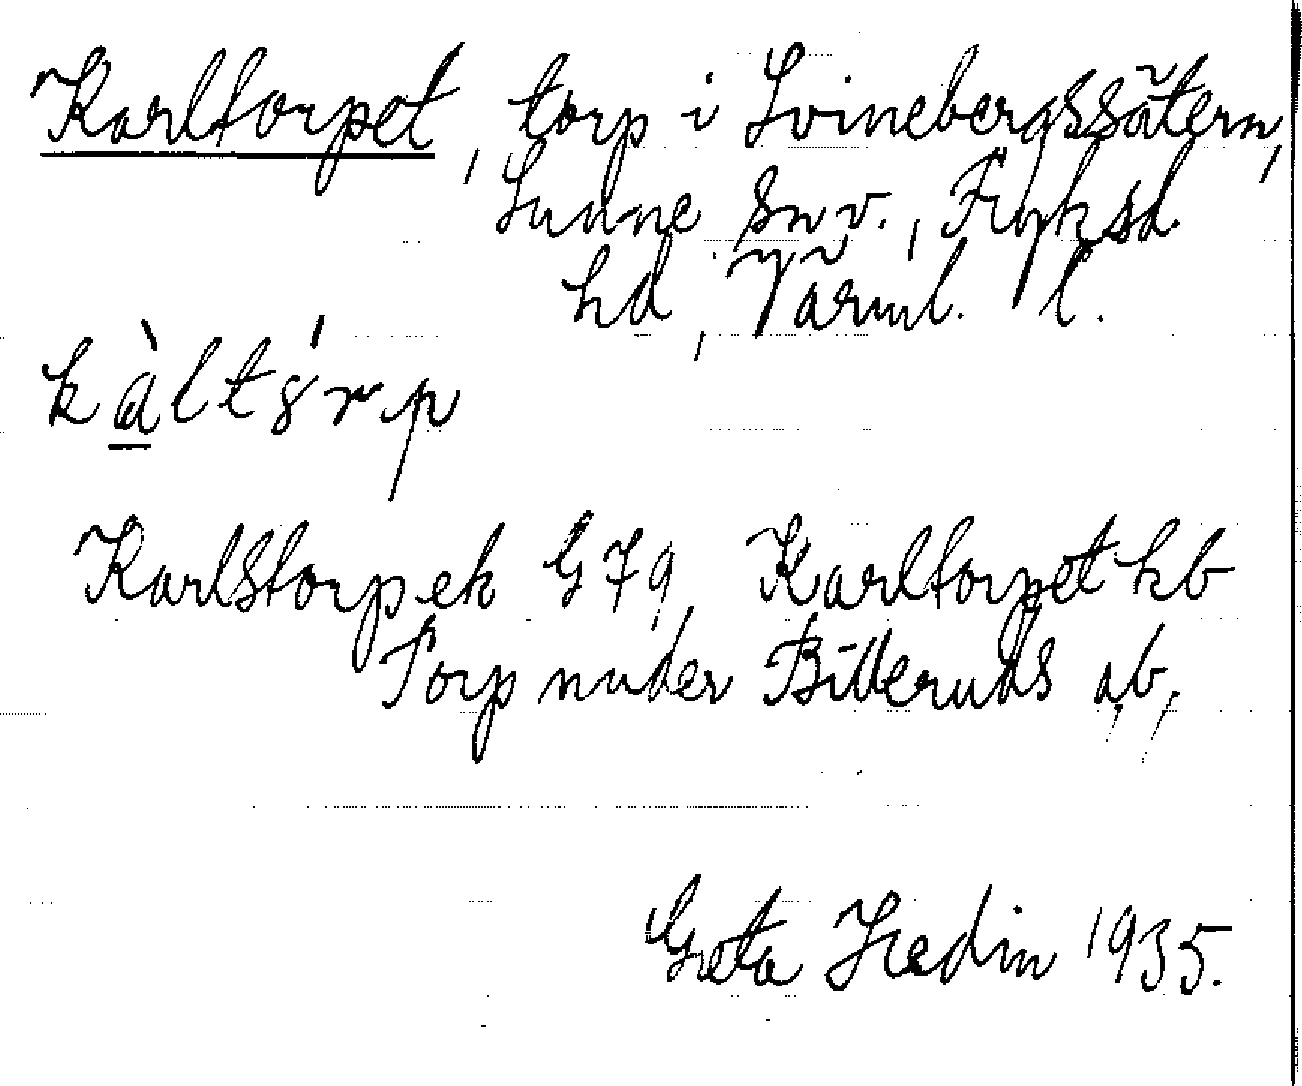 Karltorpet, torp i Svinebergssätern,
Sunne snv., Fryksd.
hd, Värml. l.
k à l t ś r p
Karlstorpek G79, Karltorpet kb
Torp under Billeruds ab.,
Greta Hedin 1935.